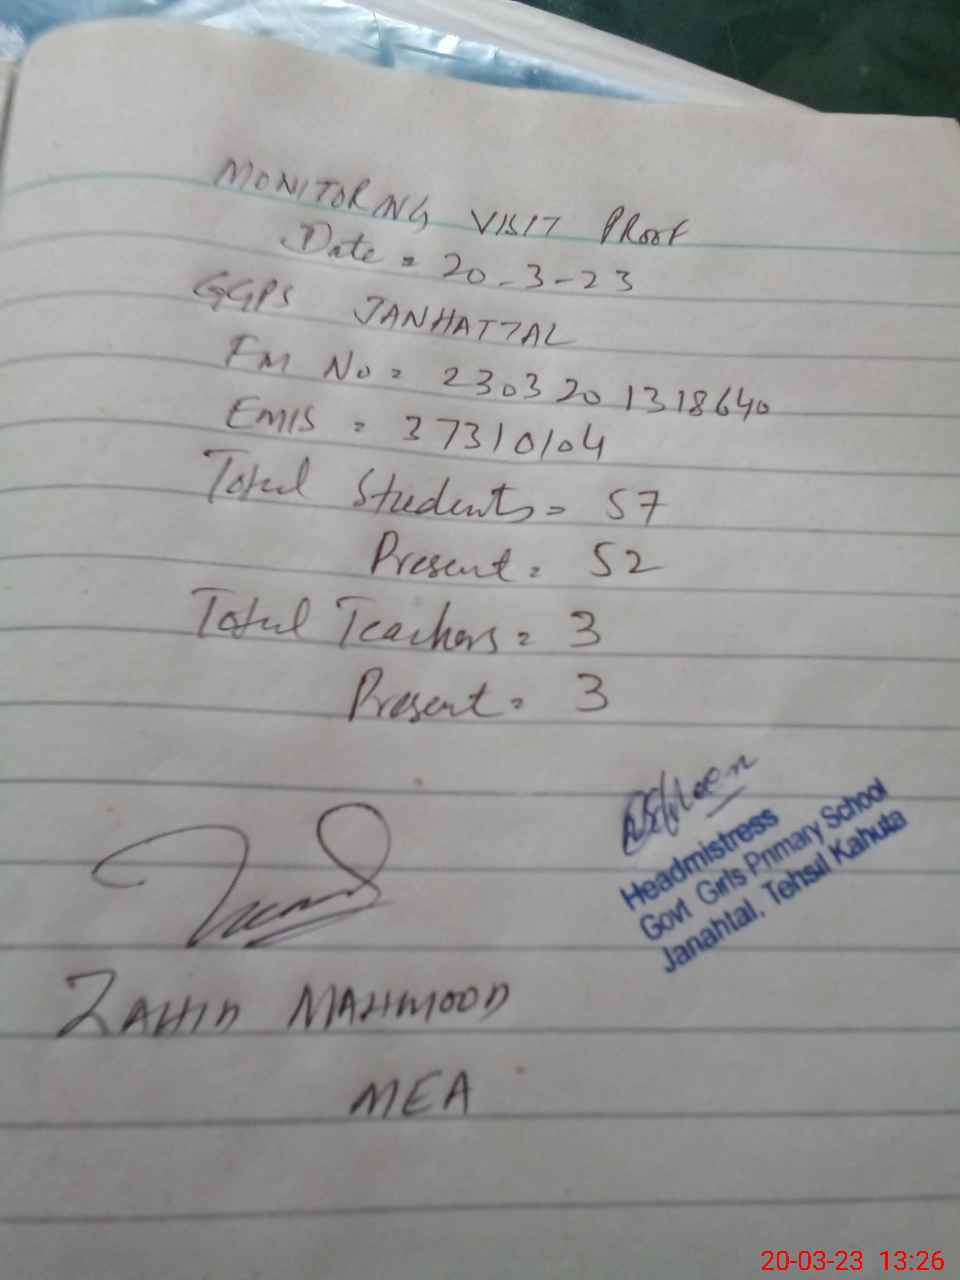 MONITORNG VISIT PROOF
Date = 20-3-23
GGPS JANHATTAL
FM No = 2303201318640
EMIS = 37310104
Total Students = 57
Present = 52
Total Teachers = 3
Present = 3
Headmistress
Govt Girls Primary School
Janahtal, Tehsil Kahuta
ZAHID MAHMOOD
MEA
20-03-23 13:26